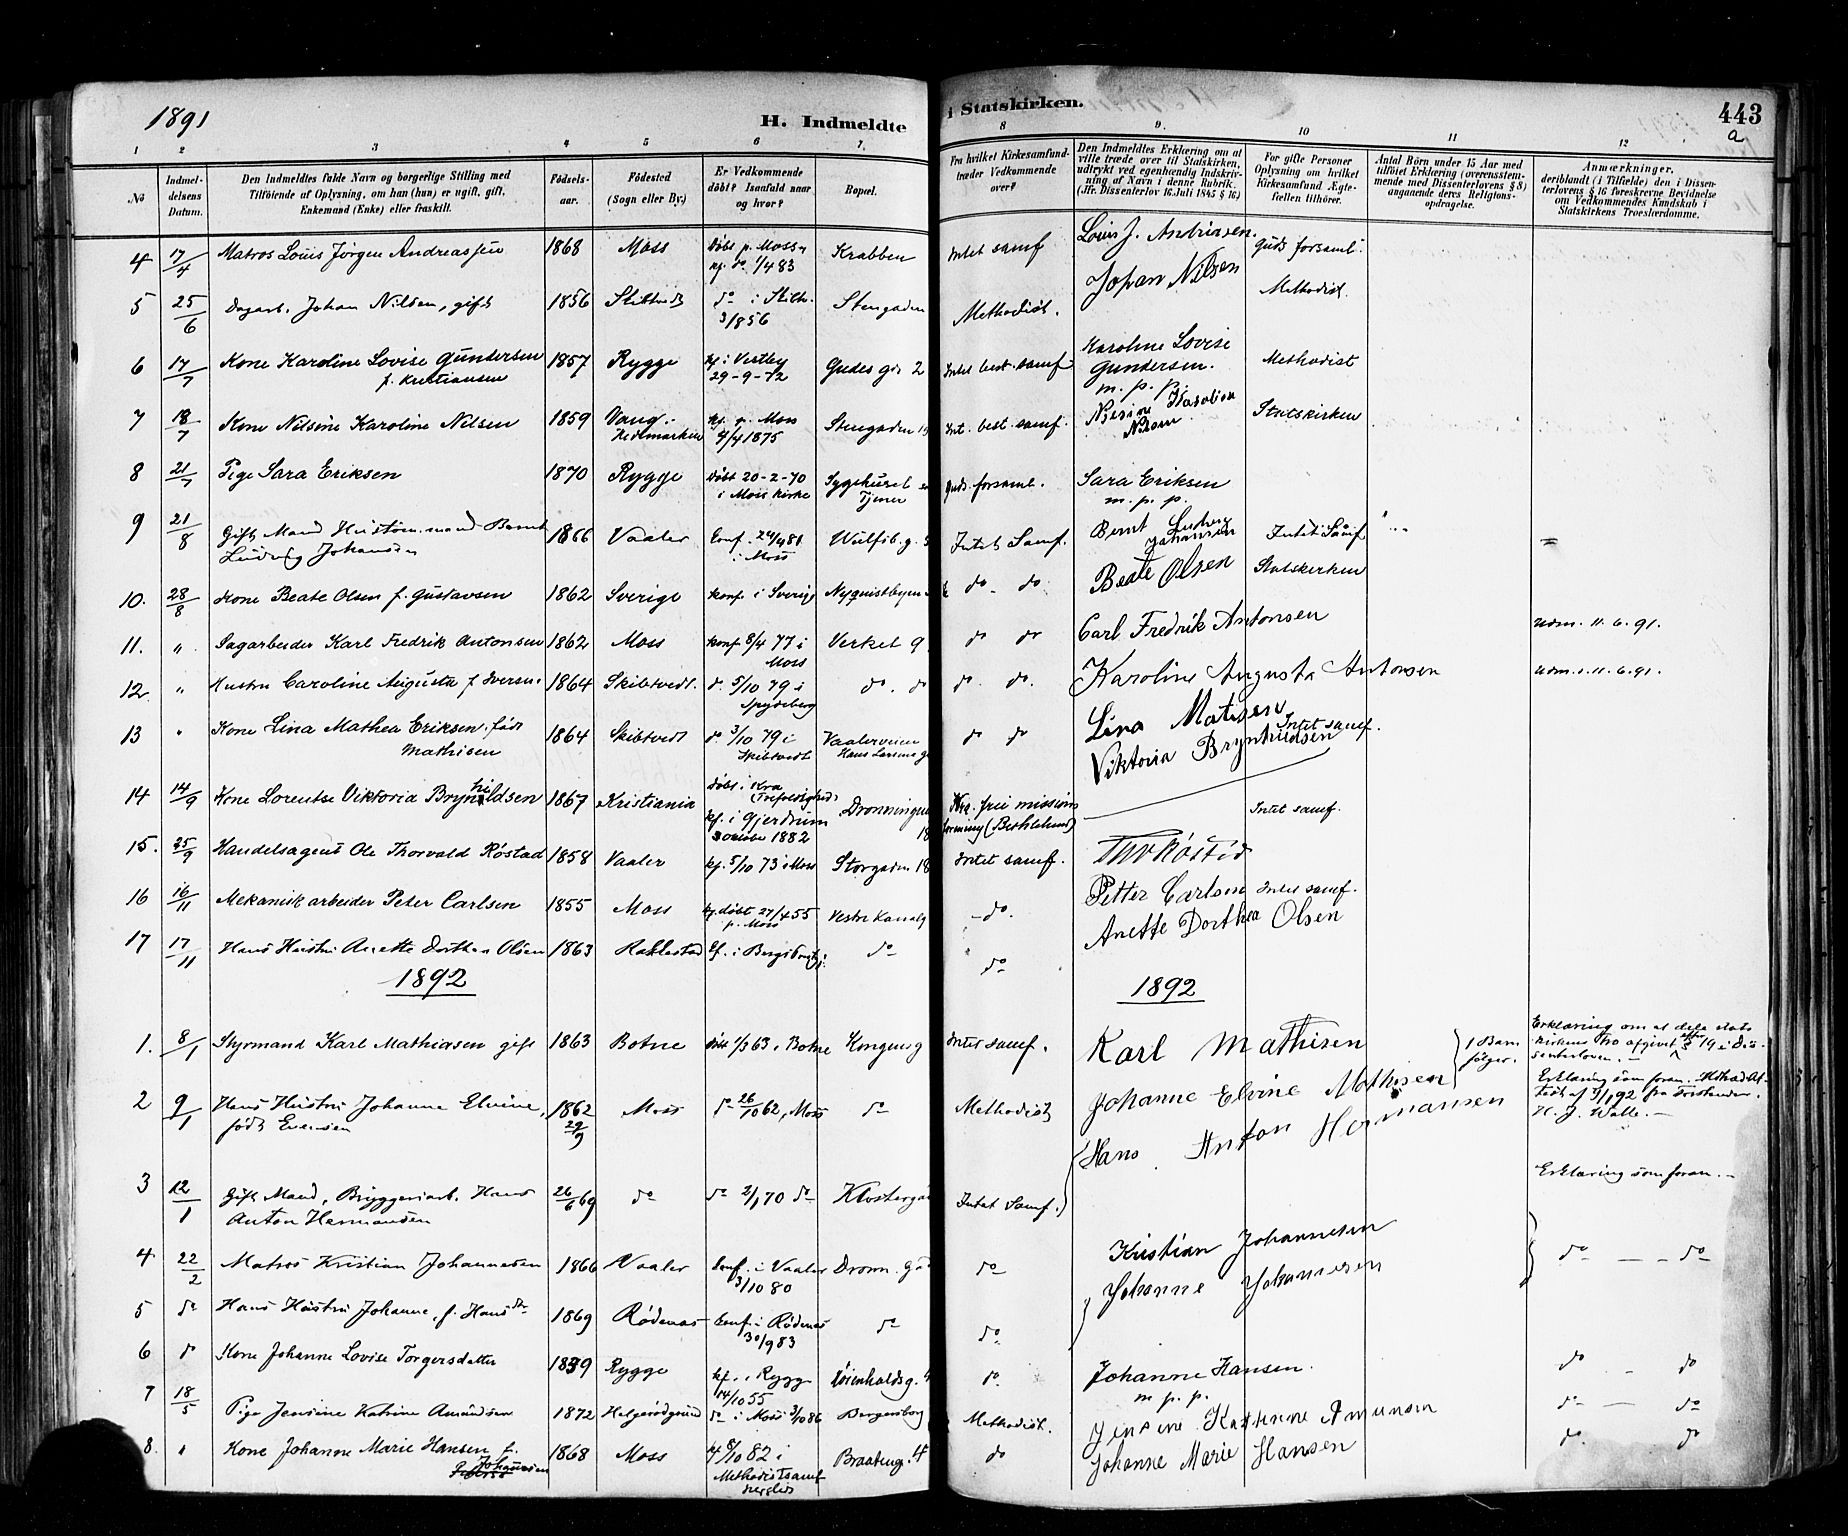 1891
H. Indmeldte
i Statskirken.
443
a
1 2 3 4 5 6 7. 8 9. 10 11 12
No
Indmel-
delsens
Datum.
Den Indmeldtes fulde Navn og borgerlige Stilling med
Tilföiende af Oplysning, om han (hun) er ugift, gift,
Enkemand (Enke) eller fraskilt.
Födsels-
aar.
Födested
(Sogn eller By.)
Er Vedkommende
döbt? Isaafald naar
og hvor?
Bopæl.
Fra hvilket Kirkesamfund
træder Vedkommende
over?
Den Indmeldtes Erklæring om at
ville træde over til Statskirken,
udtrykt ved egenhændig Indskriv-
ning af Navn i denne Rubrik.
(Jfr. Dissenterlov 16 Juli 1845 § 16)
For gifte Personer
Oplysning om hvilket
Kirkesamfund Ægte-
fællen tilhører.
Antal Börn under 15 Aar med
tilföiet Erklæring (overensstem-
mende med Dissenterlovens § 8)
angaaende deres Religions-
opdragelse.
Anmærkninger,
deriblandt (i Tilfælde) den i Dissen-
terlovens § 16 foreskrevne Bevidnelse
om Vedkommendes Kundskab i
Statskirkens Troeslærdomme.
4 17/4 Matros Louis Jörgen Andreassen 1868 Moss Döbt p. Moss Krabben Intet samf Louis J. Andriasen. Guds forsaml.
kf. do 1/4 83
5 25/6 Dagarb. Johan Nilsen, gift 1856 Skibtvedt do i Skibtv. Stengaden Methodist. Johan Nilsen Methodist.
3/1856
6 17/7 Kone Karoline Lovise Gundersen 1857 Rygge kf. i Vestby Gudes gd. 2 Intet best. samf Karoline Lovise Gundersen. m. p. p. Methodist
f. Kristiansen 29-9-72
7 18/7 Kone Nilsine Karoline Nilsen 1859 Vang. Hedemarken kf. p. Moss 4/4 1875 Stengaden Int. best. samf. Karoline Nilsen Statskirken
8 21/7 Pige Sara Eriksen 1870 Rygge Döbt 20-2-70 i Moss kirke Sygehuset Tjener Guds forsaml. Sara Eriksen m. p. p.
9 21/8 Gift Mand Bernt Ludvig Johansen 1866 Vaaler Conf. i Moss Intet Samf. Bernt Ludvig Johansen Intet Samf
10. 28/8 Kone Beate Olsen f. Gustavsen 1862 Sverige konf i Sverige Nyquistbyen do - do Beate Olsen Statskirken
11. " Sagarbeider Karl Fredrik Antonsen 1862 Moss konf 8/4 77 i Moss Verket 9 do do Carl Fredrik Antonsen udm. 11.6.91.
12 " Hustru Caroline Augusta f. Iversen 1864 Skibtvedt. do 5/10 79 i Spydeberg do. do do. do. Karoline Augusta Antonsen udm. 11.6.91.
13 " Kone Lina Mathea Eriksen. född Mathisen 1864 Skibtvedt do 3/10 79 i Skibtvedt Vaalerveien do do Lina Matisen Intet samf.
Viktoria Brynhildsen
14 14/9 Kone Lorentse Viktoria Brynhildsen 1867 Kristiania döbt i Kra (Trefoldighed) kf. i Gjerdrum 3 October 1882 Dronningens 18 Kra. frie missions forening (Bethlehem) Intet samf.
15. 25/9 Handelsagent Ole Thorvald Röstad 1858 Vaaler kf. 5/10 73 i Moss Storgaden 18 Intet samf.
16 16/11 Mekanisk arbeider Peter Carlsen 1855 Moss döbt 27/4 55 p. Moss Vestre Kanalg - do. Petter Carlsen Intet samf.
17 17/11 Hans Hustru Anette Dorthea Olsen 1863 Rakkestad do do Anette Dorthea Olsen
1892
1892
1. 8/1 Styrmand Karl Mathiasen gift 1863 Botne Döbt 1/3 63 i Botne Kongensg Intet samf. Karl Mathisen 1 Barn følger. Erklæring om at dele stats kirkens tro afgivet efter § 19 i Dissenterloven. -
2 9/1 Hans Hustru Johanne Elvine, födt Evensen 1862 29/9 Moss do 26/10 62, Moss do Methodist Johanne Elvine Mathisen Erklæring som foran. Methodist af 3/1 92 fra Forstander H. J. Walle. -
3 12/1 Gift Mand, Bryggeriarb. Hans Anton Hermansen 26/6 69 do do 2/1 70 do Klostergd Intet Samf. Hans Anton Hermansen Erklæring som foran. -
4 22/2 Matros Kristian Johannesen 1866 Vaaler Conf. i Vaaler 3/10 80 Dronn. gd do Kristian Johannesen do - - do
5 do Hans Hustru Johanne, f. Hansdtr 1869 Rödenæs Conf. i Rödenæs 30/9 83 do do Johanne Johannesen
6 do Kone Johanne Lovise Torgersdatter 1839 Rygge kf. i Rygge 14/10 55 do Johanne Hansen. m. p. p. do - do
7 18/5 Pige Jensine Katrine Amundsen 1872 Helgerödgrund do i Moss 3/10 86 Bergersborg Methodist. Jensine Kathrine Amunsen do - do
8. " Kone Johanne Marie Hansen f. Johannesen 1868 Moss kf 8/10 82 i Methodistsamf herstids Braateng. 4 do Johanne Marie Hansen do. do